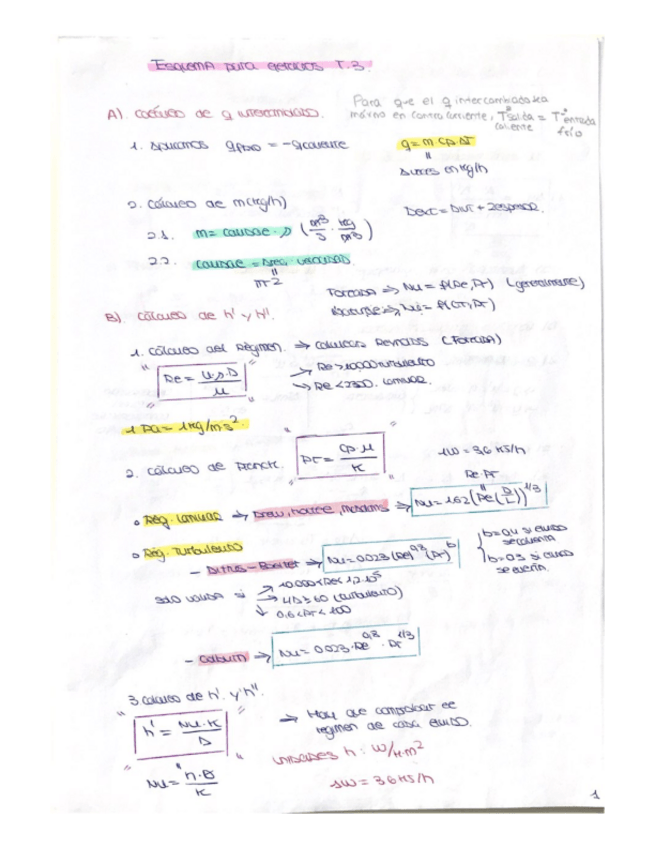 Esquema para ejercicios T.3.
Para que el q intercambiado sea
máximo en contracorriente, Tª salida caliente = Tª entrada frío
A). Cálculo de q intercambiado.
1. Aplicamos q frío = -q caliente
q = m cp ΔT
en kg/h
2. Cálculo de m (kg/h)
Dext = Dint + 2espesor.
2.1. m = caudal · ρ (m³/s · kg/m³)
2.2. caudal = área · velocidad.
πr²
Forzada => Nu = f(Re, Pr) (generalmente)
=> Nu = f(Gr, Pr)
B). Cálculo de h' y h''.
1. Cálculo del Régimen. => calcular Reynolds (Forzada)
Re = u·ρ·D/μ
→ Re > 10000 turbulento
→ Re < 2300. laminar.
1 Pa = 1kg/m·s².
2. Cálculo de Prandt.
Pr = cp·μ/K
1W = 3,6 KJ/h
Re Pr
• Rég. Laminar => Drew, Hottel, McAdams => Nu = 1,62 (Pe (D/L))^1/3
• Rég. Turbulento
- Dittus-Boelter => Nu = 0,023 (Re)^0,8 (Pr)^b
b = 0,4 si fluido se calienta
b = 0,3 si fluido se enfría.
solo válida si
→ 10.000 < Re < 1,2·10⁵
→ L/D > 60 (turbulento)
↓ 0,6 < Pr < 100
- Colburn => Nu = 0,023·Re^0,8 · Pr^1/3
3 Cálculo de h' y h''.
h' = Nu·K/D
→ Hay que comprobar el
régimen de cada fluido.
Nu = h·D/K
unidades h: W/K·m²
1W = 3,6 KJ/h
1